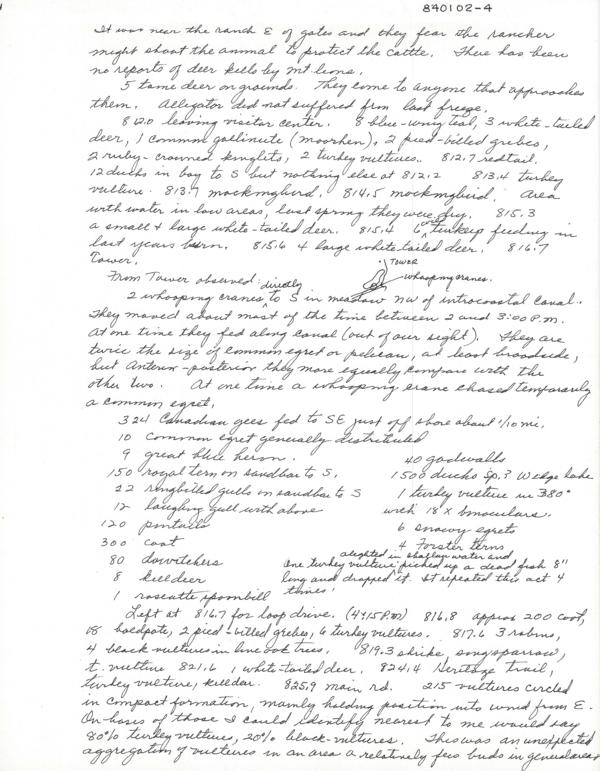 840102-4
It was near the ranch E of gates and they fear the rancher
might shoot the animal to protect the cattle. There has been
no reports of deer kills by mt lions.
5 tame deer on grounds. They come to anyone that approaches
them. Allegator did not suffered from last freeze.
812.0 leaving visitor center. 8 blue-wing teal, 3 white-tailed
deer, 1 common gallinute (moorhen), 2 pied-billed grebes,
2 ruby-crowned kinglits, 2 turkey vultures. 812.7 redtail.
12 ducks in bay to S but nothing else at 812.2 813.4 turkey
vulture. 813.7 mockingbird. 814.5 mockingbird. Area
with water in low areas, last spring they were dry. 815.3
a small & large white-tailed deer. 815.4 6 turkeys feeding in
last years burn. 815.6 4 large white-tailed deer. 816.7
Tower.
TOWER
whooping cranes.
From Tower observed:
2 whooping cranes directly to S in meadow NW of introcoastal canal.
They moved about most of the time between 2 and 3:00 P.M.
At one time they fed along canal (out of our sight). They are
twice the size of common egret or pelican, at least broadside,
but Anterior-posterior they more equally compare with the
other two. At one time a whooping crane chased temporarily
a common egret.
324 Canadian gees fed to SE just off shore about 1/10 mi.
10 common egret generally distributed
9 great blue heron.
150 royal tern on sandbar to S.
22 ringbilled gulls on sandbar to S
12 laughing gull with above
120 pintails
300 coot
80 dowitchers
8 killdeer
1 roseatte spoonbill
40 gadwalls
1500 ducks sp.? Wedge lake
1 turkey vulture in 380°
with 18X binoculars.
6 snowy egrets
4 Forster terns
One turkey vulture alighted in shallow water and picked up a dead fish 8"
long and dropped it. It repeated this act 4
times!
Left at 816.7 for loop drive. (4:15 P.M) 816.8 approx 200 coot,
18 baldpate, 2 pied-billed grebes, 6 turkey vultures. 817.6 3 robins,
4 black vultures in live oak trees. 819.3 shrike, song sparrow,
t. vulture 821.6 1 white-tailed deer. 824.4 Heritage Trail,
turkey vulture, killdeer. 825.9 main rd. 215 vultures circled
in compact formation, mainly holding position into wind from E.
On basis of those I could identify nearest to me would say
80% turkey vultures, 20% black-vultures. This was an unexpected
aggregation of vultures in an area a relatively few birds in general area